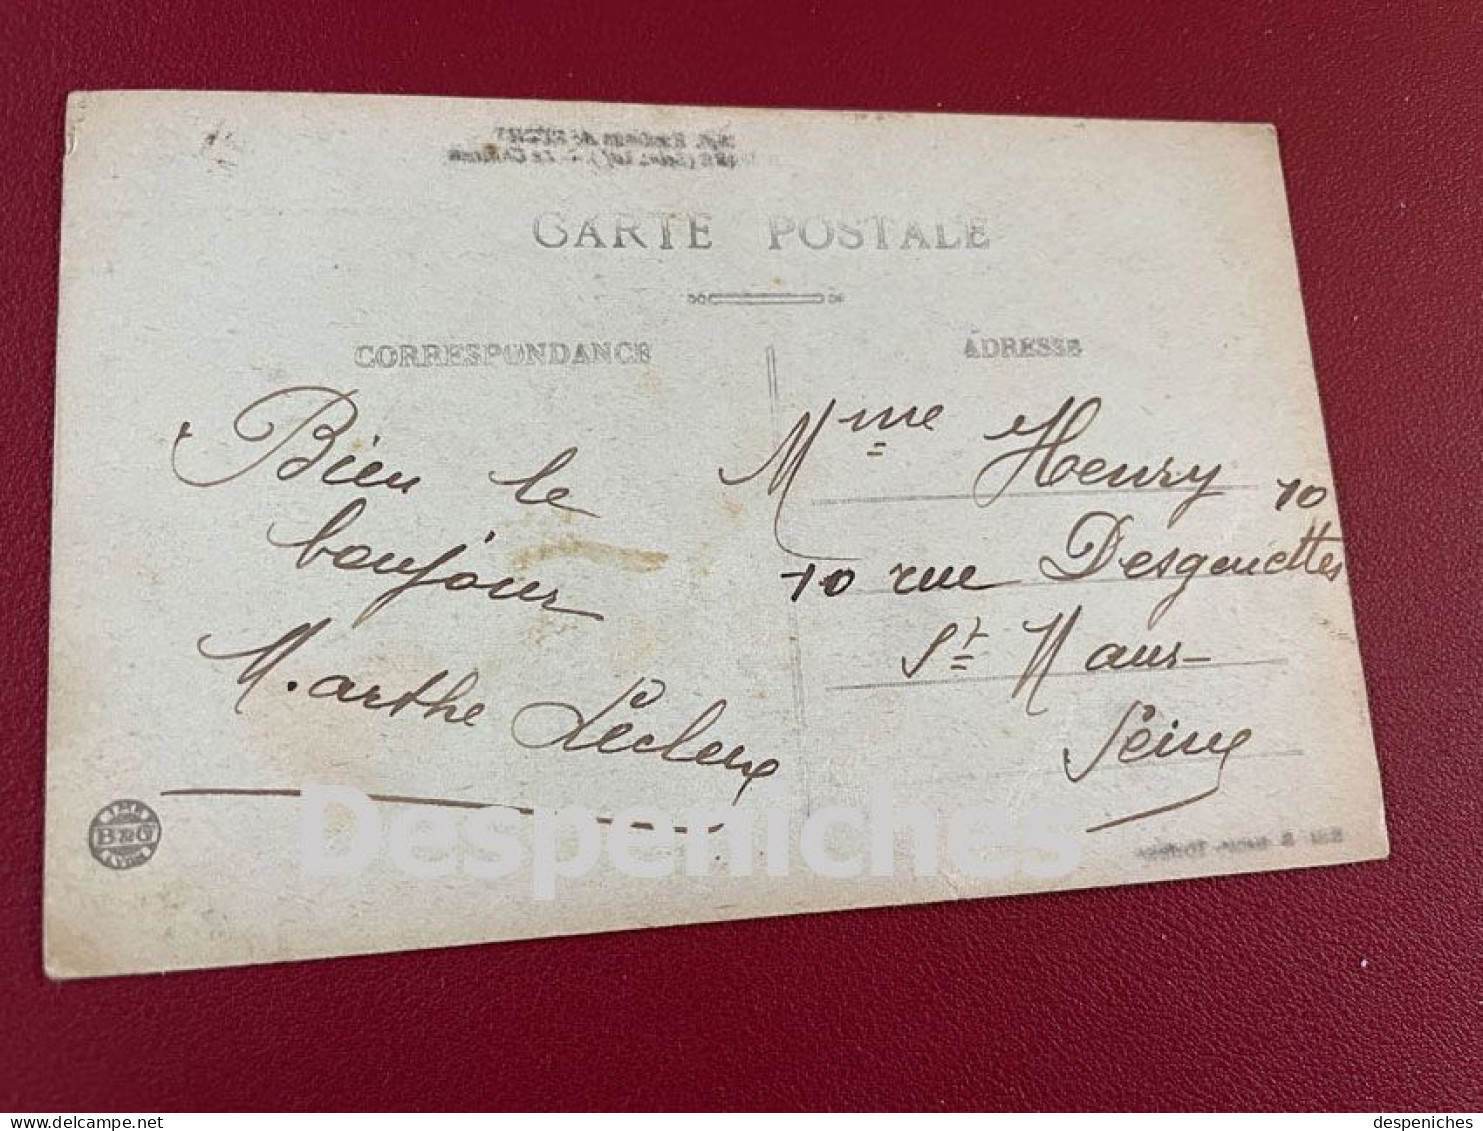 CARTE POSTALE
CORRESPONDANCE
Bien le
bonjour
Marthe Leclerc
ADRESSE
Mme Henry 10
10 rue Desgenettes
St Maur
Seine
IMP.
B & G
LYON
Despeniches
www.delcampe.net
despeniches